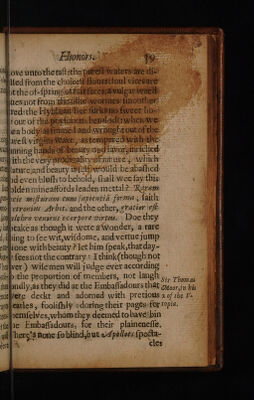 Honors. 59
ove unto the tast; the purest waters are di-
led from the choicest flowers: foul vices are
t the of-spring of fair faces, a vulgar weed
tes not from
red: the Hybl her sucks no sweet ho-
our of the poysonous hemlock: when we
e a body as framed and wrought out of the
rest virgins Waxe, as tempered with the
nning hands of beauty and favor, inriched
ith the very prodigality of nature, which
ature, and beauty it self would be abashed
nd even blush to behold, shall wee say this
olden mine affords leaden mettal? Raram
cie mixturam cum sapientia forma, saith
etronius Arbit. and the other, gratior est
ulchro veniens e corpore virtus. Doe they
peake as though it were a wonder, a rare
hing to see wit, wisdome, and vertue jump
one with beauty? let him speak, that day-
sees not the contrary: I think (though not
ver) Wise men will judge ever according
the proportion of members, not laugh
ndly, as they did at the Embassadours that
ere deckt and adorned with pretious
eatles, foolishly adoring their pages for
hemselves, whom they deemed to have bin
he Embassadours, for their plainenesse.
here's none so blind, but Apolloes specta-
cles
Sir Thomas
Moor, in his
2 of the V-
topia.